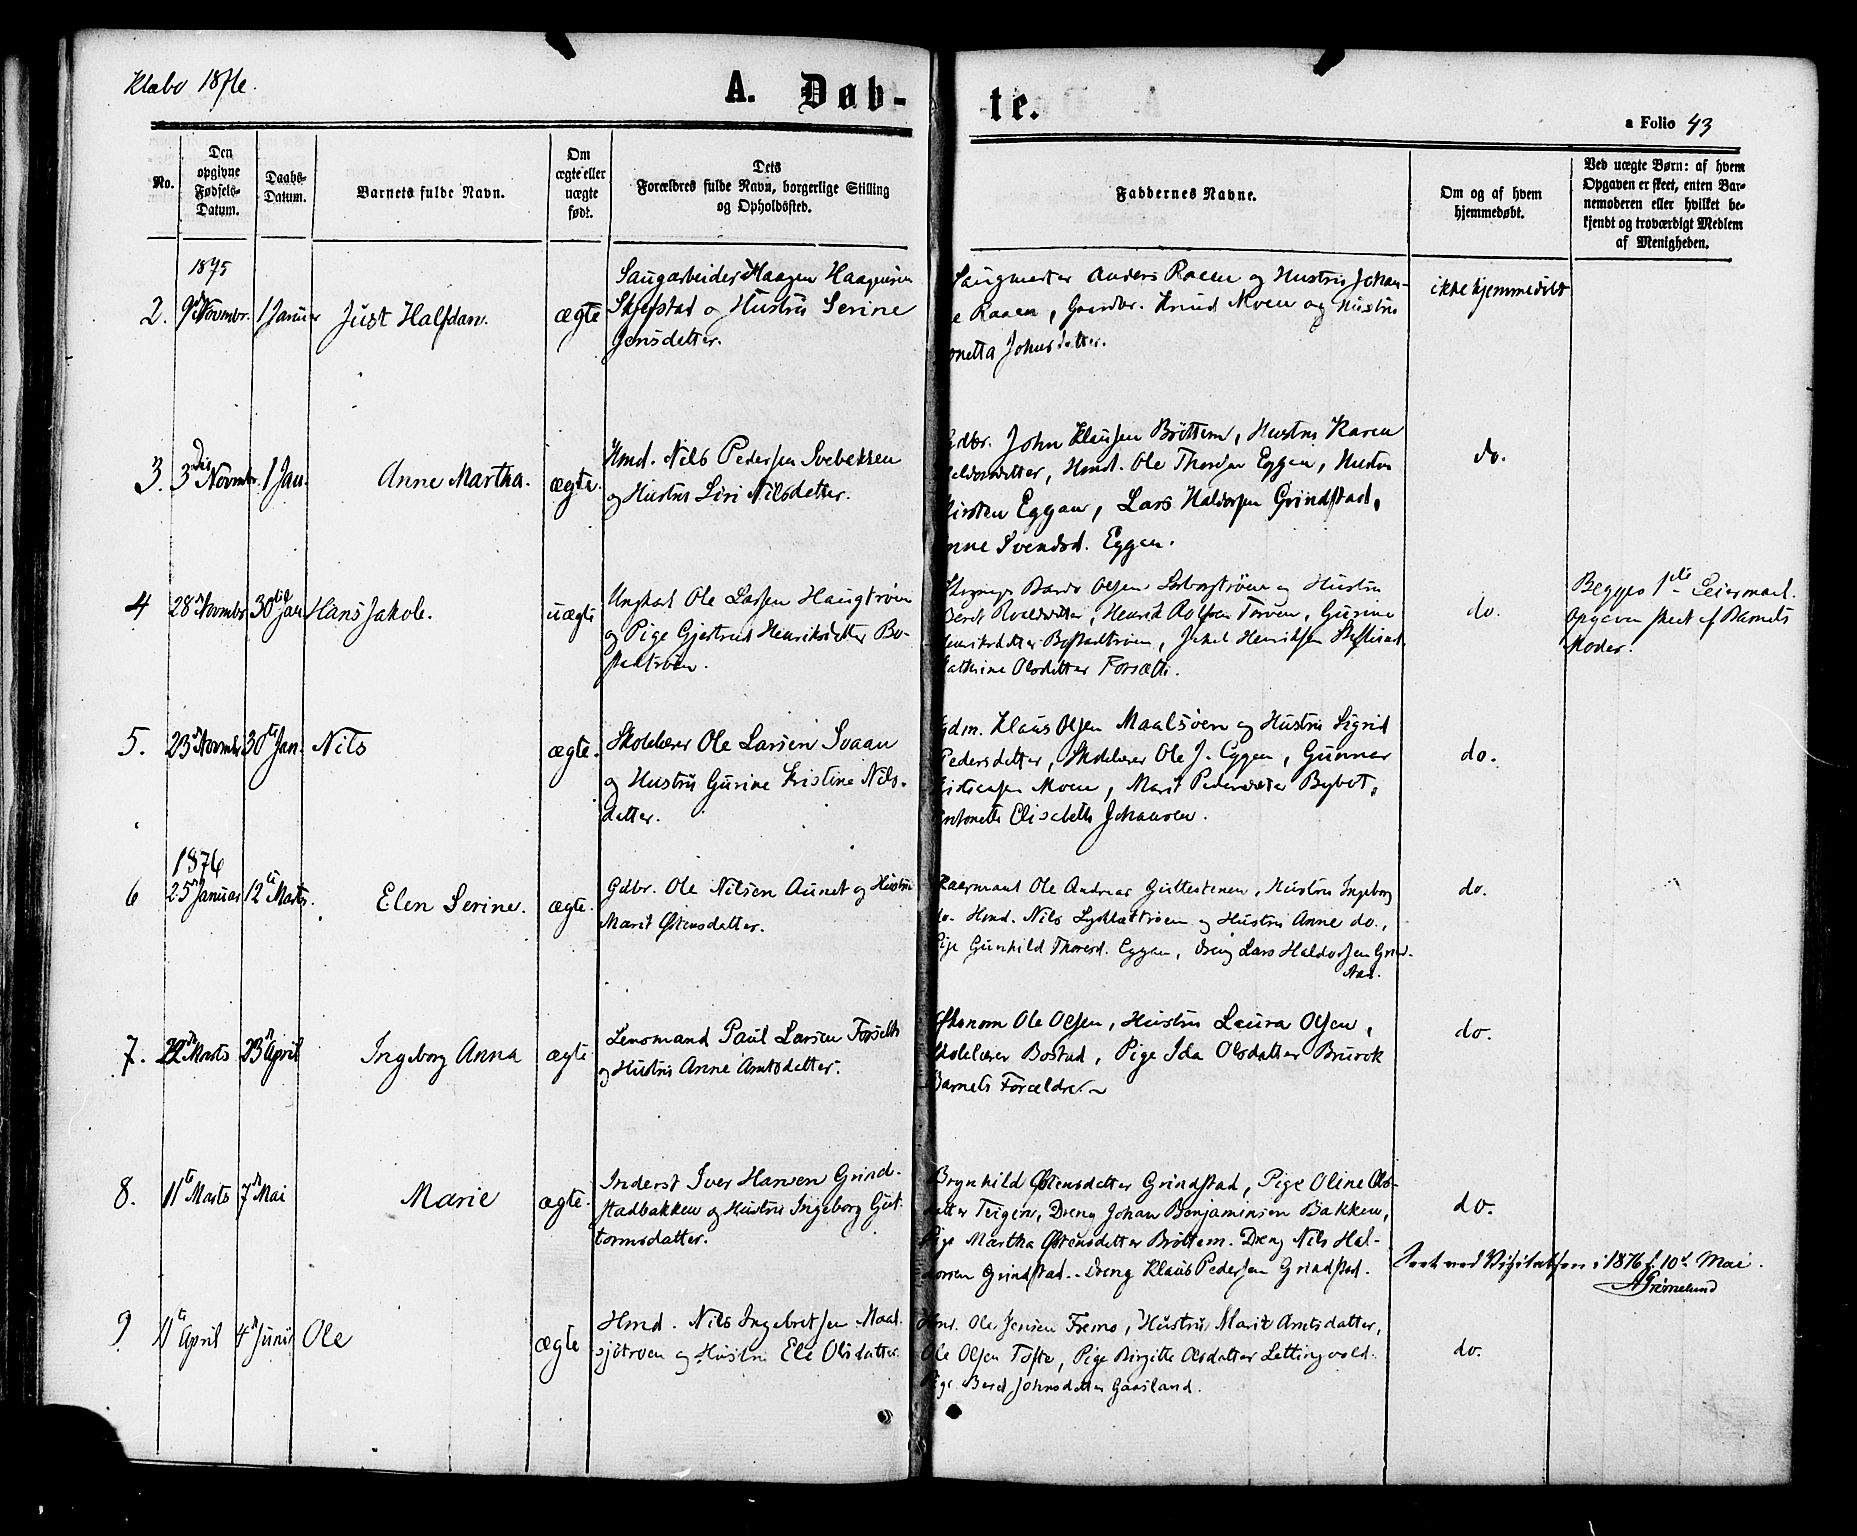 Klæbo 1876.
A. Døb-
te.
a Folio 43
No.
Den
opgivne
Fødsels-
Datum.
Daabs-
Datum.
Barnets fulde Navn.
Om
ægte eller
uægte
født.
Dets
Forældres fulde Navn, borgerlige Stilling
og Opholdssted.
Faddernes Navne.
Om og af hvem
hjemmedøbt.
Ved uægte Børn: af hvem
Opgaven er skeet, enten Bar-
nemoderen eller hvilket be-
kjendt og troværdigt Medlem
af Menigheden.
1875
2. 9 Novmbr. 1 Januar Just Halfdan. ægte
Saugarbeider Haagen Haagensen
Skjefstad og Hustru Serine
Jensdetter.
Saugmester Anders Raaen og Hustru Johan-
e Raaen, Gaardbr. Knud Moen og Hustru
onetta Johnsdatter.
ikke hjemmedøbt
3. 3die Novmbr. 1 Jan. Anne Martha. ægte.
Hmd. Nils Pedersen Svebakken
og Hustru Siri Nilsdetter.
Gdbr. John Klausen Brøttem, Hustru Karen
Haldorsdetter, Hmd. Ole Thorsen Eggen, Hustru
Kirsten Eggan, Lars Haldorsen Grindstad,
Anne Svendsd. Eggen.
do.
4 28 Novmbr 30 Jan Hans Jakob. uægte
Ungkarl Ole Larsen Haugtrøen
og Pige Gjertrud Henriksdetter Bo-
stadtrøen.
Olsen og Hustru
Henrik Gurine
Henriksdetter Bostadtrøen, Henriksen
Kathrine Olsdetter Forsæth.
do.
Begges 1ste Leiermaal.
Opgaven skeet af Barnets
Moder.
5. 23 Novmbr 30te Jan. Nils ægte.
Skolelærer Ole Larsen Svaan
og Hustru Gurine Kristine Nils-
datter.
Gdm. Klaus Olsen Maalsøen og Hustru Sigrid
Pedersdetter, Skolelærer Ole J. Eggen, Gunnar
Moen, Marit Pedersdatter Bybot,
Antonette Elisabeth Johansen.
do.
1876
6 25 Januar 12te Marts. Elen Serine. ægte.
Gdbr. Ole Nilsen Aunet og Hustru
Marit Østensdatter.
Ole Andreas Hustru Ingeborg
do. Hmd. Nils og Hustru Anne do.,
Pige Gunhild Thoresd. Eggan, Dreng Lars Haldorsen Grind-
stad.
do.
7. 22 Marts 23 April Ingeborg Anna ægte
Lensmand Paul Larsen Forseth
og Hustru Anne Arntsdatter.
Økonom Ole Olsen, Hustru Laura Olsen,
Skolelærer Bostad, Pige Ida Olsdatter Bruvok
Barnets Forældre.
do.
8. 11te Marts 7 Mai Marie ægte.
Inderst Iver Hansen Grind-
stadbakken og Hustru Ingeborg Gut-
tormsdatter.
Brynhild Østensdatter Grindstad, Pige Oline Ols-
datter Teigen, Dreng Johan Benjaminsen Bakken,
Pige Martha Østensdatter Brøttem. Dreng Nils Hal-
dorsen Grindstad. Dreng Klaus Pedersen Grindstad.
do.
Seet ved Visitatsen i 1876 d. 10de Mai.
AGrimelund
9 11te April 4 Junii Ole ægte
Hmd. Nils Ingebretsen Maal-
sjøtrøen og Hustru Eli Olsdatter.
Hmd. Ole Jensen Fremo, Hustru Marit Arntsdatter,
Ole Olsen Tofte, Pige Birgitte Olsdatter Lettingvold.
Pige Beret Johnsdatter Gaasland.
do.